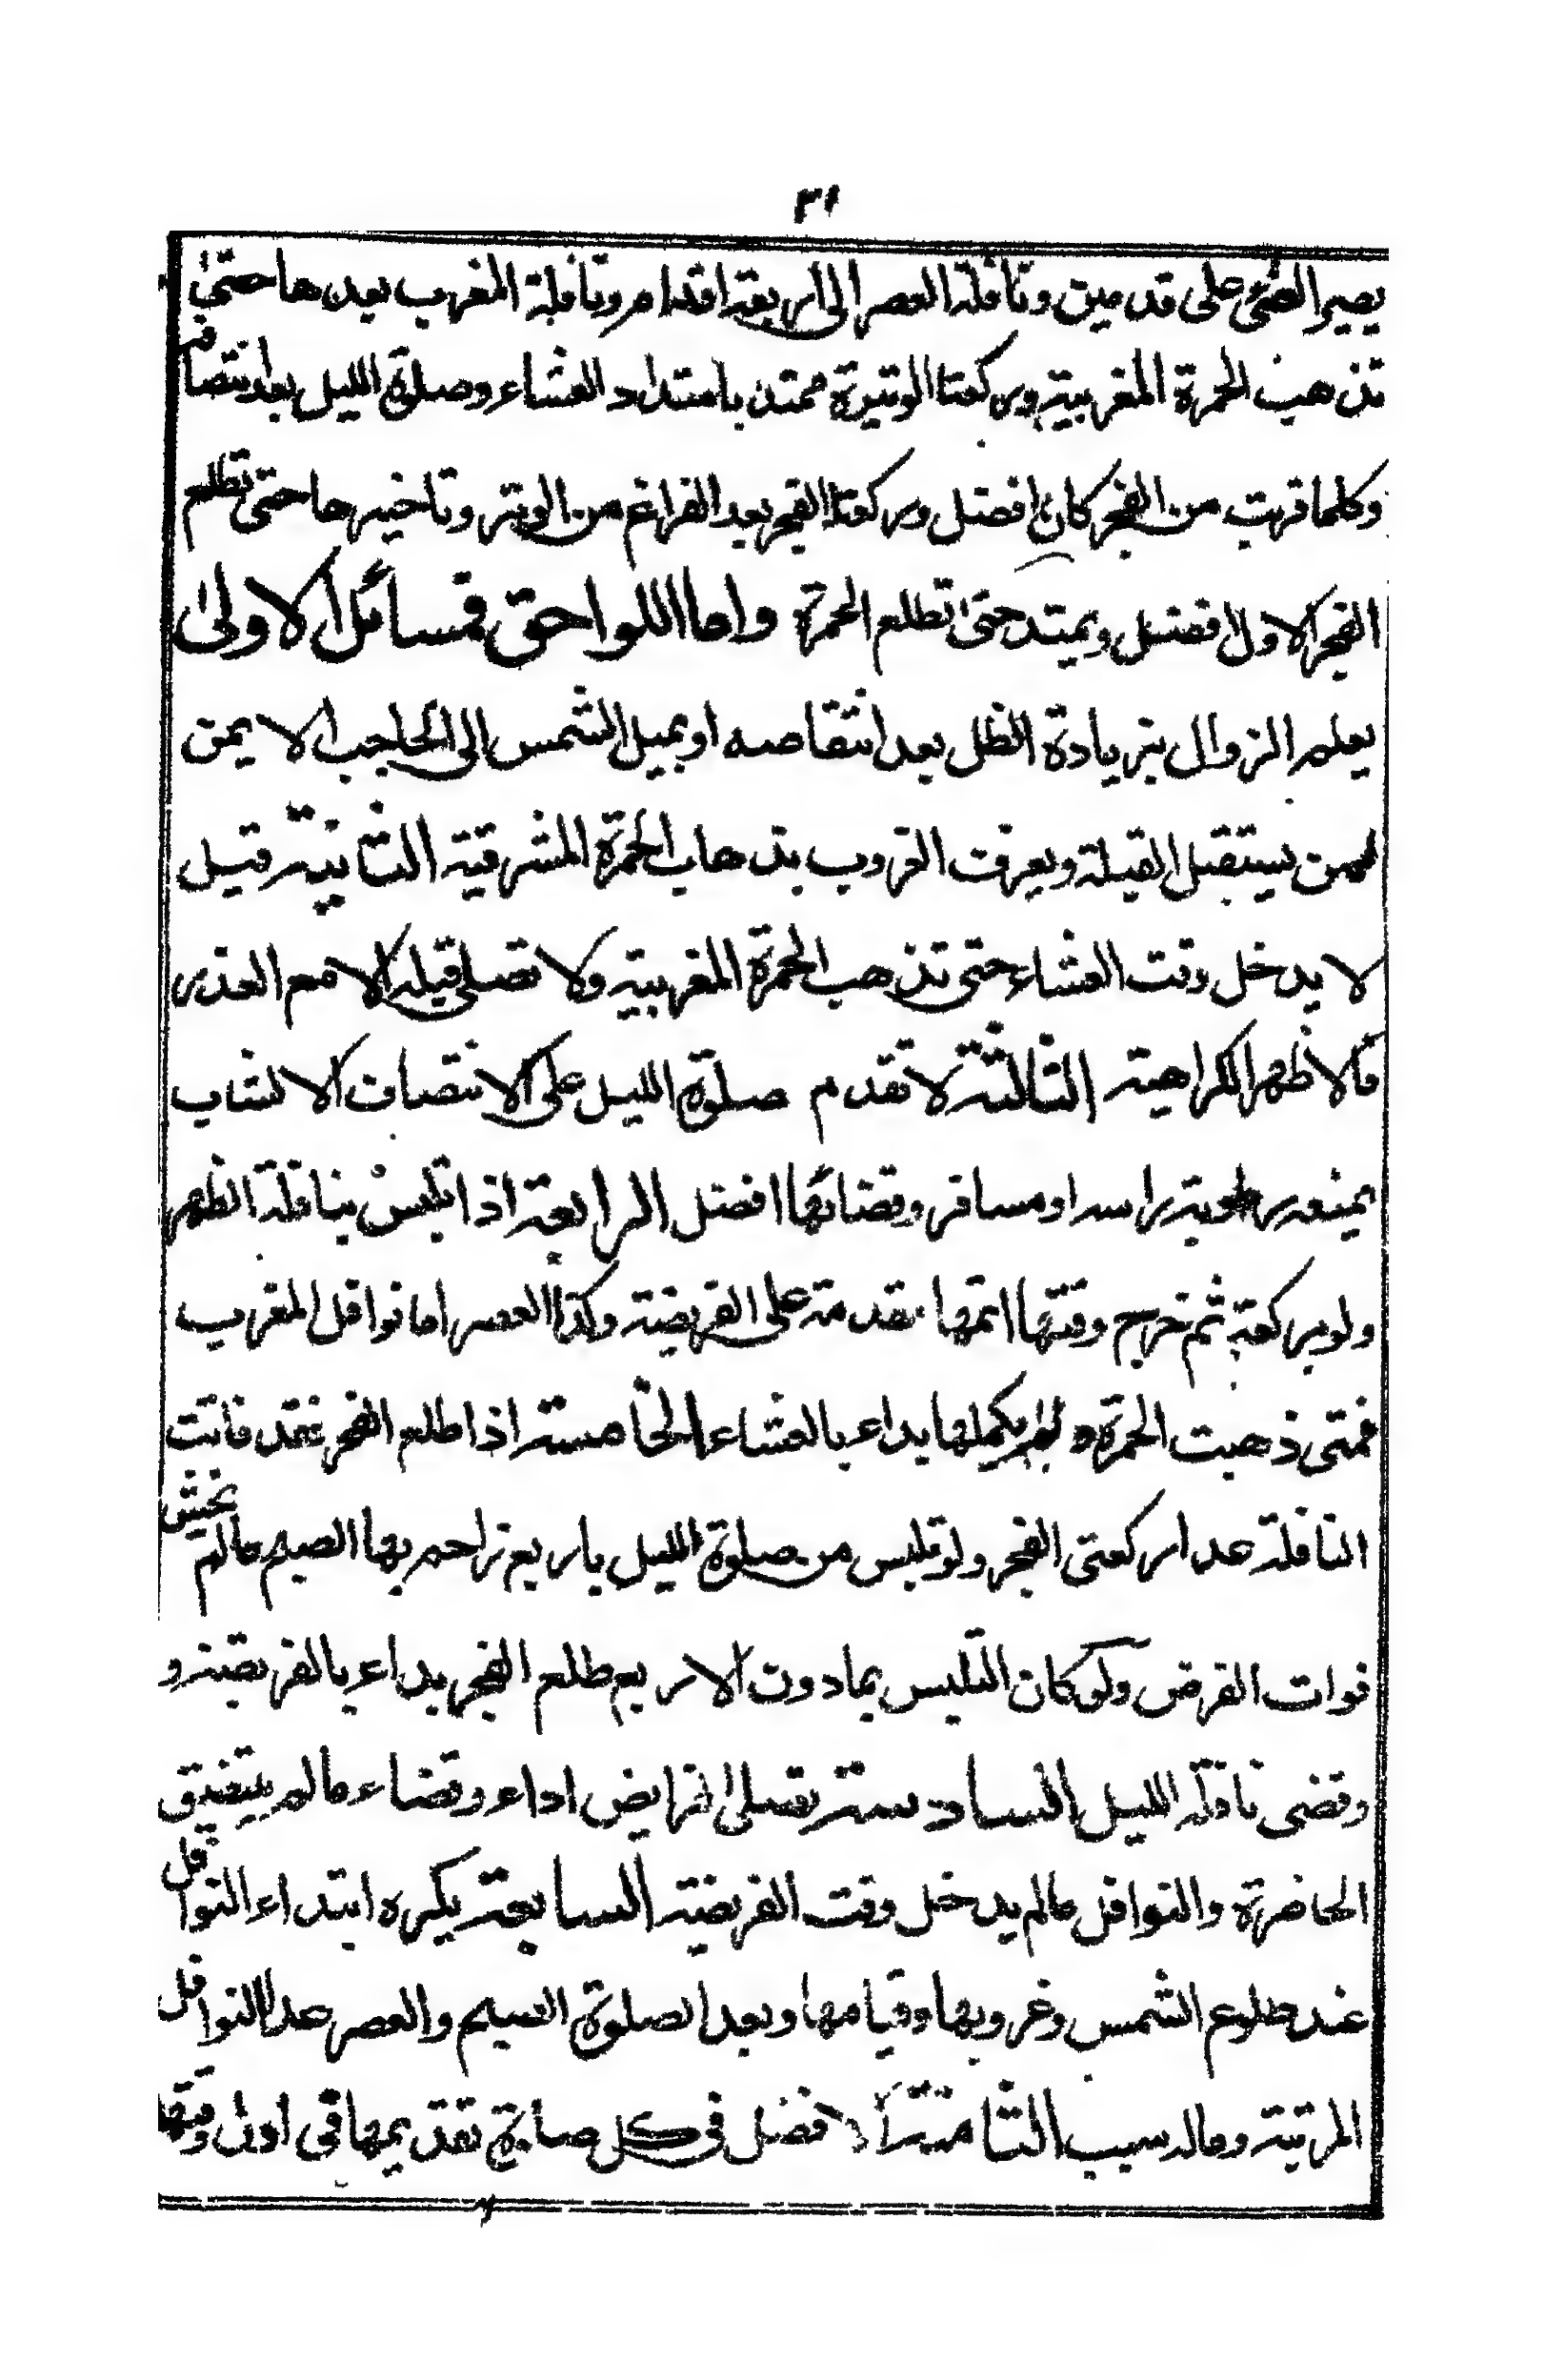 ٣١
يصير الفئ على قدمين ونافلة العصر الى اربعة اقدام ونافلة المغرب بعدها حتى
تذهب الحمرة المغربية وركعتا الوتيرة ممتد بامتداد العشاء وصلوة الليل بعد انتصافه
وكلما قربت من الفجر كان افضل وركعتا الفجر بعد الفراغ من الوتر وتاخيرها حتى تطلع
الفجر الاول افضل ويمتد حتى تطلع الحمرة واما اللواحق فمسائل الاولى
يعلم الزوال بزيادة الظل بعد انتقاصه او بميل الشمس الى الحاجب الايمن
لمن يستقبل القبلة ويعرف الغروب بذهاب الحمرة المشرقية الثانية قيل
لا يدخل وقت العشاء حتى تذهب الحمرة المغربية ولا تصلى قبله الا مع العذر
فالاظهر الكراهية الثالثة لا تقدم صلوة الليل على الانتصاف الا لشاب
يمنعه رطوبة راسه او مسافر وقضائها افضل الرابعة اذا تلبس بنافلة الظهر
ولو بركعة ثم خرج وقتها اتمها مقدمة على الفريضة وكذا العصر اما نوافل المغرب
فمتى ذهبت الحمرة ولم يكملها بداء بالعشاء الخامسة اذا طلع الفجر فقد فاتت
النافلة عدا ركعتى الفجر ولو تلبس من صلوة الليل باربع زاحم بها الصبح مالم يخش
فوات الفرض ولو كان التلبس بما دون الاربع طلع الفجر بداء بالفريضة و
وقضى نافلة الليل السادسة تصلى الفرايض اداء وقضاء مالم يتضيق
الحاضرة والنوافل مالم يدخل وقت الفريضة السابعة يكره ابتداء النوافل
عند طلوع الشمس وغروبها وقيامها وبعد الصلوة الصبح والعصر عدا النوافل
المرتبة وماله سبب الثامنة الافضل فى كل صلوة تقديمها فى اول وقتها